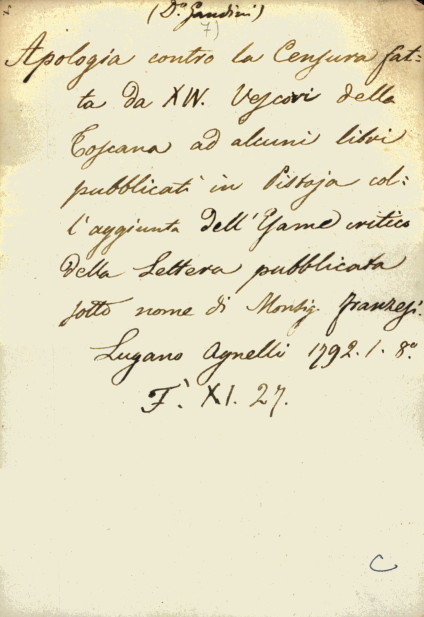 (D.ⁿ Gandini)
7)
Apologia contro la Censura fat=
ta da XIV. Vescovi della
Toscana ad alcuni libri
pubblicati in Pistoja col=
l'aggiunta dell'Esame critico
della Lettera pubblicata
sotto nome di Monsig. Franzesi.
Lugano Agnelli 1792. 1. 8.º
F. XI. 27.
C